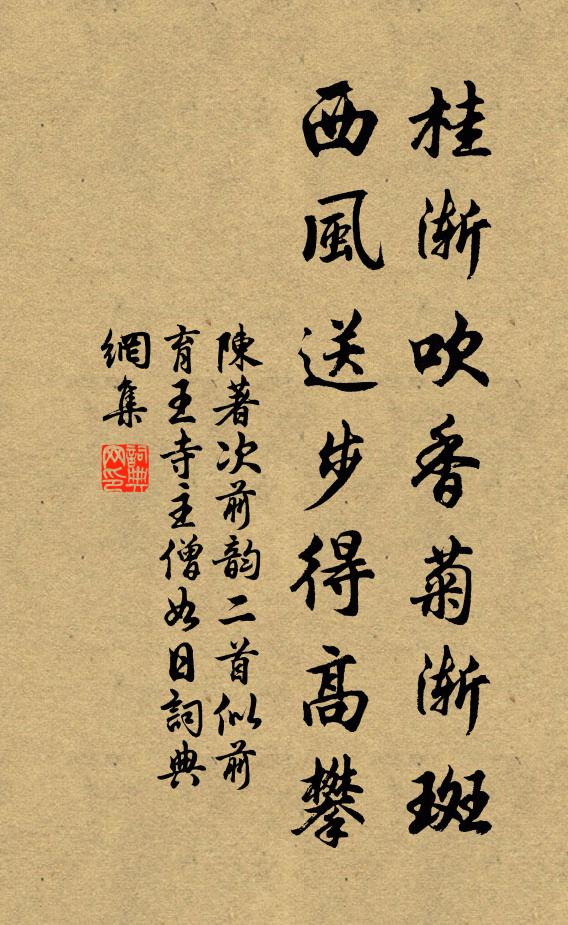 桂漸吹香菊漸斑
西風送步得高攀
陳著次前韵二首似前
育王寺主僧如日詞典
網集
詞典网印